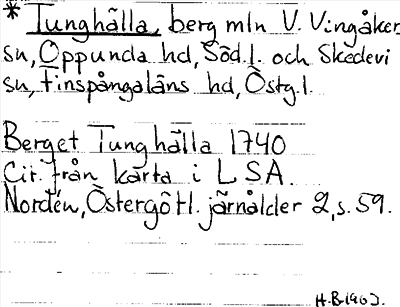 * Tunghälla, berg mln V. Vingåker
sn, Oppunda hd, Söd.l. och Skedevi
sn, Finspångaläns hd, Östg.l.
Berget Tunghälla 1740
Cit. från karta i LSA.
Nordén, Östergötl. järnålder 2, s. 59.
H.B. 1963.